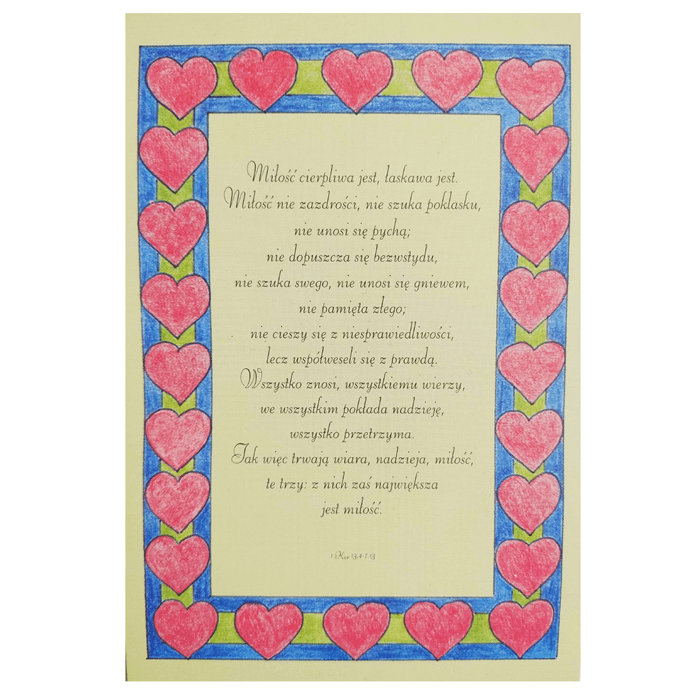 Miłość cierpliwa jest, łaskawa jest.
Miłość nie zazdrości, nie szuka poklasku,
nie unosi się pychą;
nie dopuszcza się bezwstydu,
nie szuka swego, nie unosi się gniewem,
nie pamięta złego;
nie cieszy się z niesprawiedliwości,
lecz współweseli się z prawdą.
Wszystko znosi, wszystkiemu wierzy,
we wszystkim pokłada nadzieję,
wszystko przetrzyma.
Tak więc trwają wiara, nadzieja, miłość,
te trzy: z nich zaś największa
jest miłość.
1 Kor 13, 4-7. 13